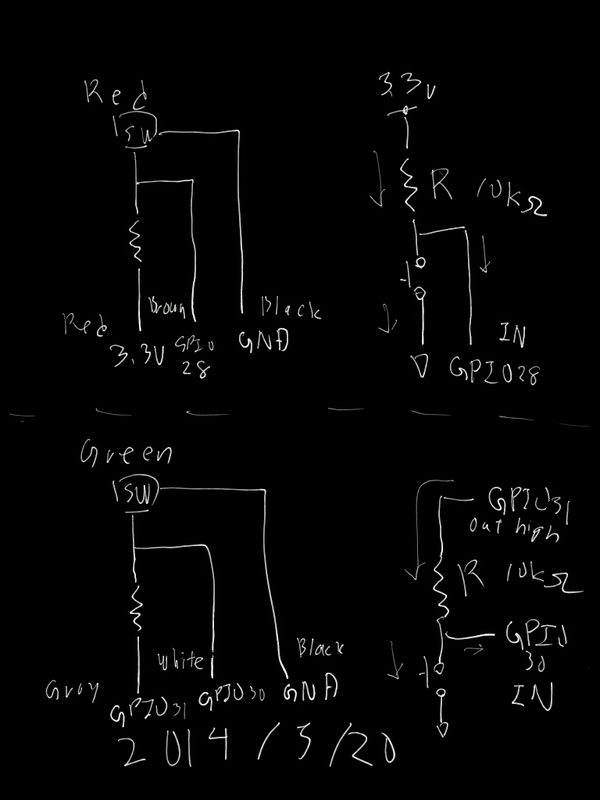 Red
SW
Brown
Black
Red
3.3V
GPIO
28
GND
3.3V
R 10kΩ
IN
GPIO28
Green
SW
White
Black
Gray
GPIO31
GPIO30
GND
GPIO31
out high
R 10kΩ
GPIO
30
IN
2014/5/20